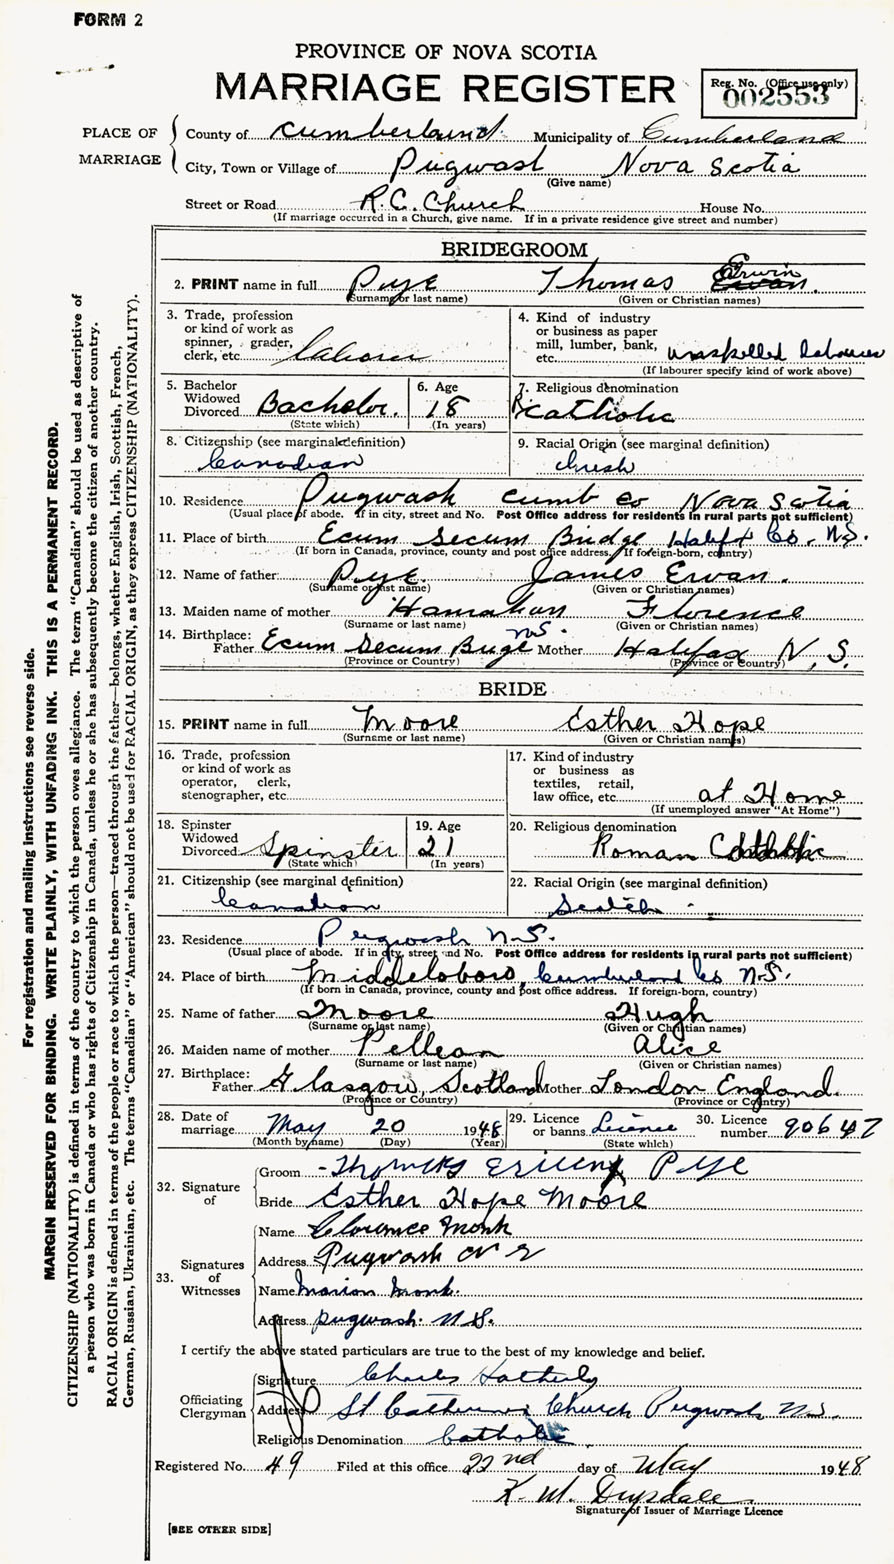 FORM 2
PROVINCE OF NOVA SCOTIA
MARRIAGE REGISTER
Reg. No. (Office use only)
002553
PLACE OF MARRIAGE
County of Cumberland Municipality of Cumberland
City, Town or Village of Pugwash Nova Scotia
(Give name)
Street or Road R.C. Church House No.
(If marriage occurred in a Church, give name. If in a private residence give street and number)
BRIDEGROOM
2. PRINT name in full Pye Thomas Erwin
(Surname or last name) (Given or Christian names)
3. Trade, profession or kind of work as spinner, grader, clerk, etc. laborer
4. Kind of industry or business as paper mill, lumber, bank, etc. unskilled labourer
(If labourer specify kind of work above)
5. Bachelor Widowed Divorced Bachelor.
(State which)
6. Age 18
(In years)
7. Religious denomination
R Catholic
8. Citizenship (see marginal definition)
Canadian
9. Racial Origin (see marginal definition)
Irish
10. Residence Pugwash Cumb Co Nova Scotia
(Usual place of abode. If in city, street and No. Post Office address for residents in rural parts not sufficient)
11. Place of birth Ecum Secum Bridge Halifx Co. N.S.
(If born in Canada, province, county and post office address. If foreign-born, country)
12. Name of father Pye. James Ewan.
(Surname or last name) (Given or Christian names)
13. Maiden name of mother Hanrahan Florence
(Surname or last name) (Given or Christian names)
14. Birthplace:
Father Ecum Secum Brige N.S. Mother Halifax N.S.
(Province or Country) (Province or Country)
BRIDE
15. PRINT name in full Moore Esther Hope
(Surname or last name) (Given or Christian names)
16. Trade, profession or kind of work as operator, clerk, stenographer, etc.
17. Kind of industry or business as textiles, retail, law office, etc. at Home
(If unemployed answer "At Home")
18. Spinster Widowed Divorced Spinster
(State which)
19. Age 21
(In years)
20. Religious denomination
Roman Catholic
21. Citizenship (see marginal definition)
Canadian
22. Racial Origin (see marginal definition)
Scotch
23. Residence Pugwash N.S.
(Usual place of abode. If in city, street and No. Post Office address for residents in rural parts not sufficient)
24. Place of birth Middleboro, Cumberland Co N.S.
(If born in Canada, province, county and post office address. If foreign-born, country)
25. Name of father Moore Hugh
(Surname or last name) (Given or Christian names)
26. Maiden name of mother Alice
(Surname or last name) (Given or Christian names)
27. Birthplace:
Father Glasgow, Scotland Mother London England.
(Province or Country) (Province or Country)
28. Date of marriage May 20 1948
(Month by name) (Day) (Year)
29. Licence or banns Licence
(State which)
30. Licence number 90647
32. Signature of
Groom Thomas Pye
Bride Esther Hope Moore
33. Signatures of Witnesses
Name Clorence Monk
Address Pugwash N S
Name Marion Monk.
Address Pugwash N.S.
I certify the above stated particulars are true to the best of my knowledge and belief.
Officiating Clergyman
Signature Charles Hatherly
Address St Catherines Church Pugwash N.S.
Religious Denomination Catholic
Registered No. 49 Filed at this office 22nd day of May 1948
K. M. Drysdale
Signature of Issuer of Marriage Licence
[SEE OTHER SIDE]
For registration and mailing instructions see reverse side.
MARGIN RESERVED FOR BINDING. WRITE PLAINLY, WITH UNFADING INK. THIS IS A PERMANENT RECORD.
CITIZENSHIP (NATIONALITY) is defined in terms of the country to which the person owes allegiance. The term "Canadian" should be used as descriptive of
a person who was born in Canada or who has rights of Citizenship in Canada, unless he or she has subsequently become the citizen of another country.
RACIAL ORIGIN is defined in terms of the people or race to which the person—traced through the father—belongs, whether English, Irish, Scottish, French,
German, Russian, Ukrainian, etc. The terms "Canadian" or "American" should not be used for RACIAL ORIGIN, as they express CITIZENSHIP (NATIONALITY).